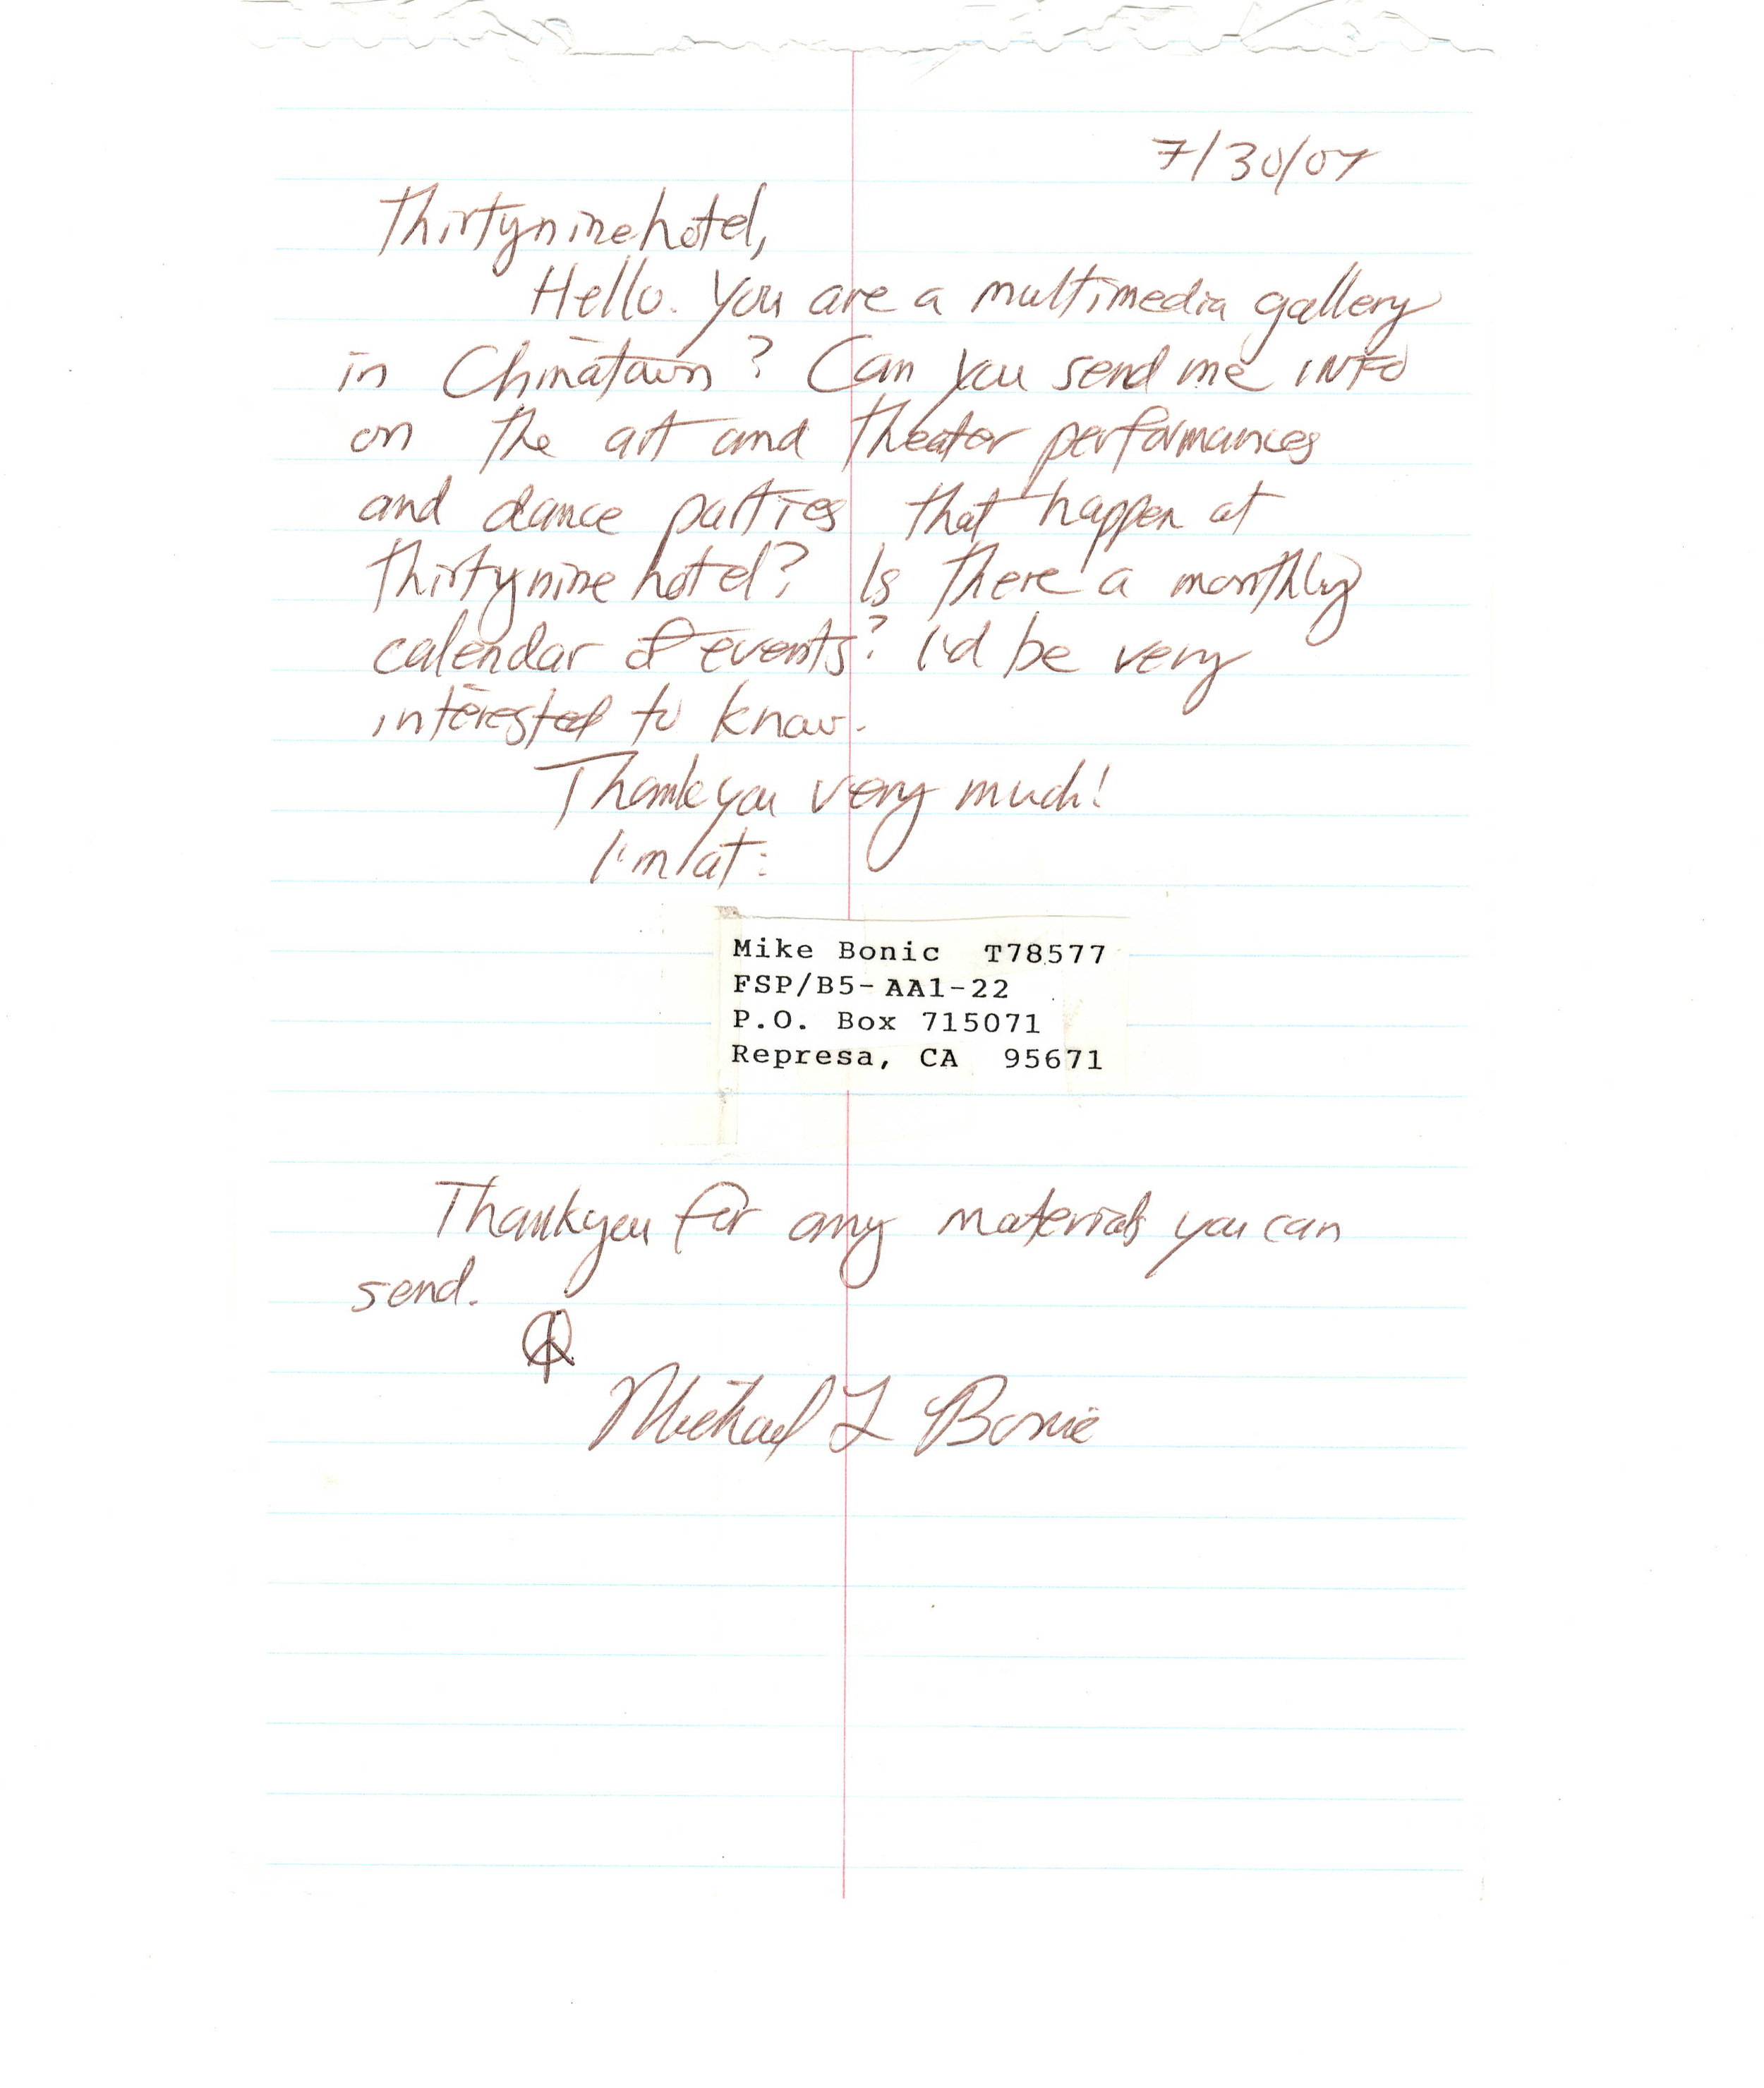 7/30/07
Thirtyninehotel,
Hello. You are a multimedia gallery
in Chinatown? Can you send me INFO
on the art and theater performances
and dance parties that happen at
thirtyninehotel? Is there a monthly
calendar of events? I'd be very
interested to know.
Thankyou very much!
I'm at:
Mike Bonic T78577
FSP/B5-AA1-22
P.O. Box 715071
Represa, CA 95671
Thankyou for any materials you can
send.
Michael L Bonic